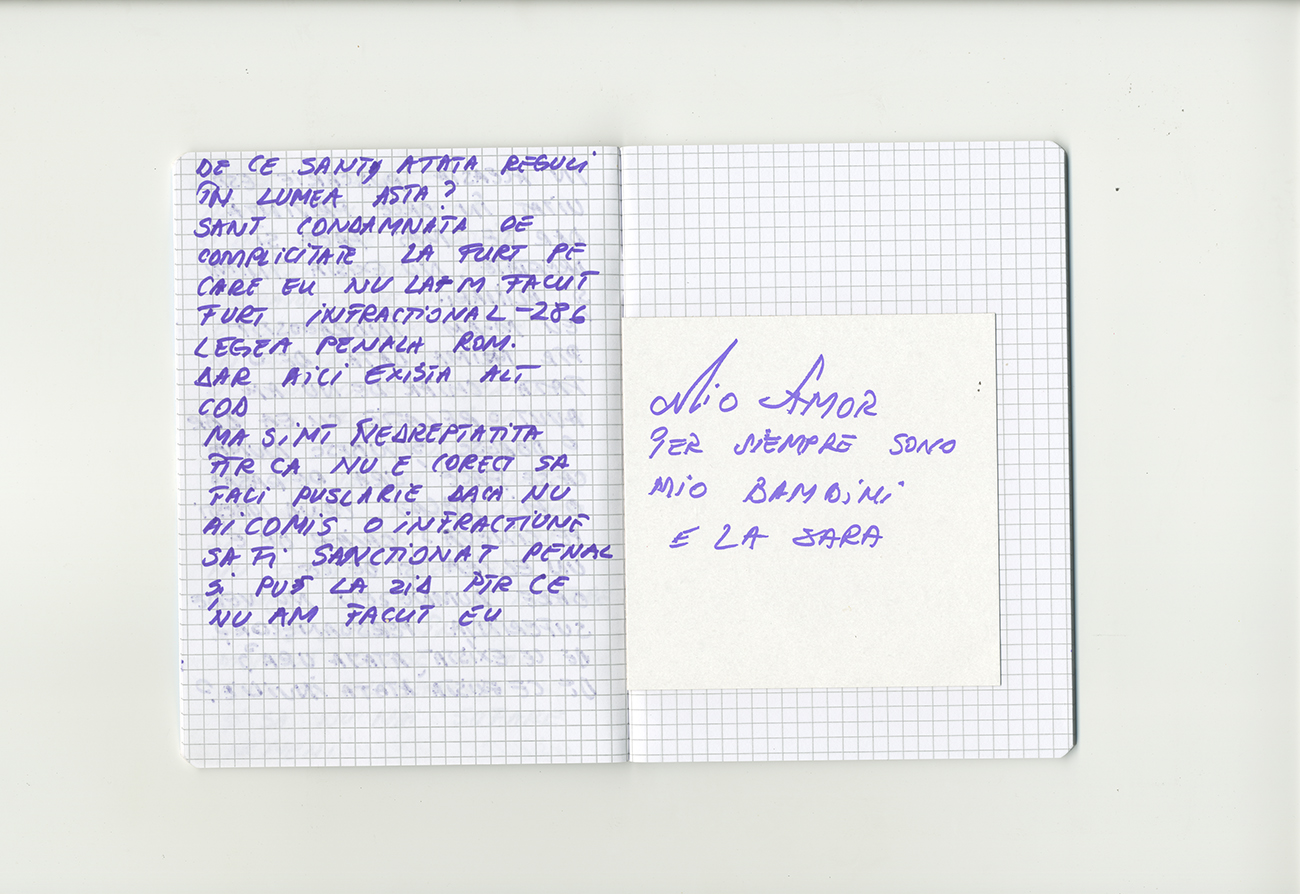 DE CE SANT ATATA REGULI
ÎN LUMEA ASTA?
SANT CONDAMNATA DE
COMPLICITATE LA FURT PE
CARE EU NU LAM FACUT
FURT INFRACTIONAL -286
LEGEA PENALA ROM.
DAR AICI EXISTA ALT
COD
MA SIMT NEDREPTATITA
PTR CA NU E CORECT SA
FACI PUSCARIE DACA NU
AI COMIS O INFRACTIUNE
SA FI SANCTIONAT PENAL
ȘI PUS LA ZID PTR CE
NU AM FACUT EU
MIO AMOR
PER SIEMPRE SONO
MIO BAMBINI
E LA SARA